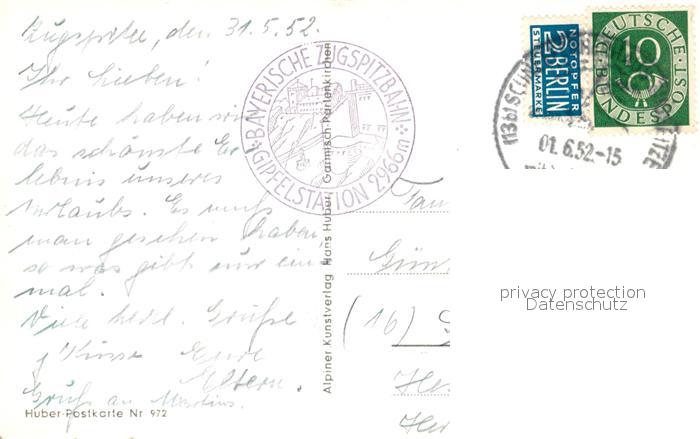 Zugspitze, den 31.5.52.
Ihr Lieben!
Heute haben wir
das schönste Er
lebnis unseres
Urlaubs. Es muß
man gesehen haben,
so was gibt nur ein
mal.
Viele herzl. Grüße
u Küsse Eure
Eltern.
Gruß an
Huber-Postkarte Nr 972
BAYERISCHE ZUGSPITZBAHN
GIPFELSTATION 2966m
Alpiner Kunstverlag Hans Huber Garmisch-Partenkirchen
NOTOPFER
2 BERLIN
STEUERMARKE
DEUTSCHE
BUNDESPOST
10
(13b)
01.6.52-15
(16)
privacy protection
Datenschutz